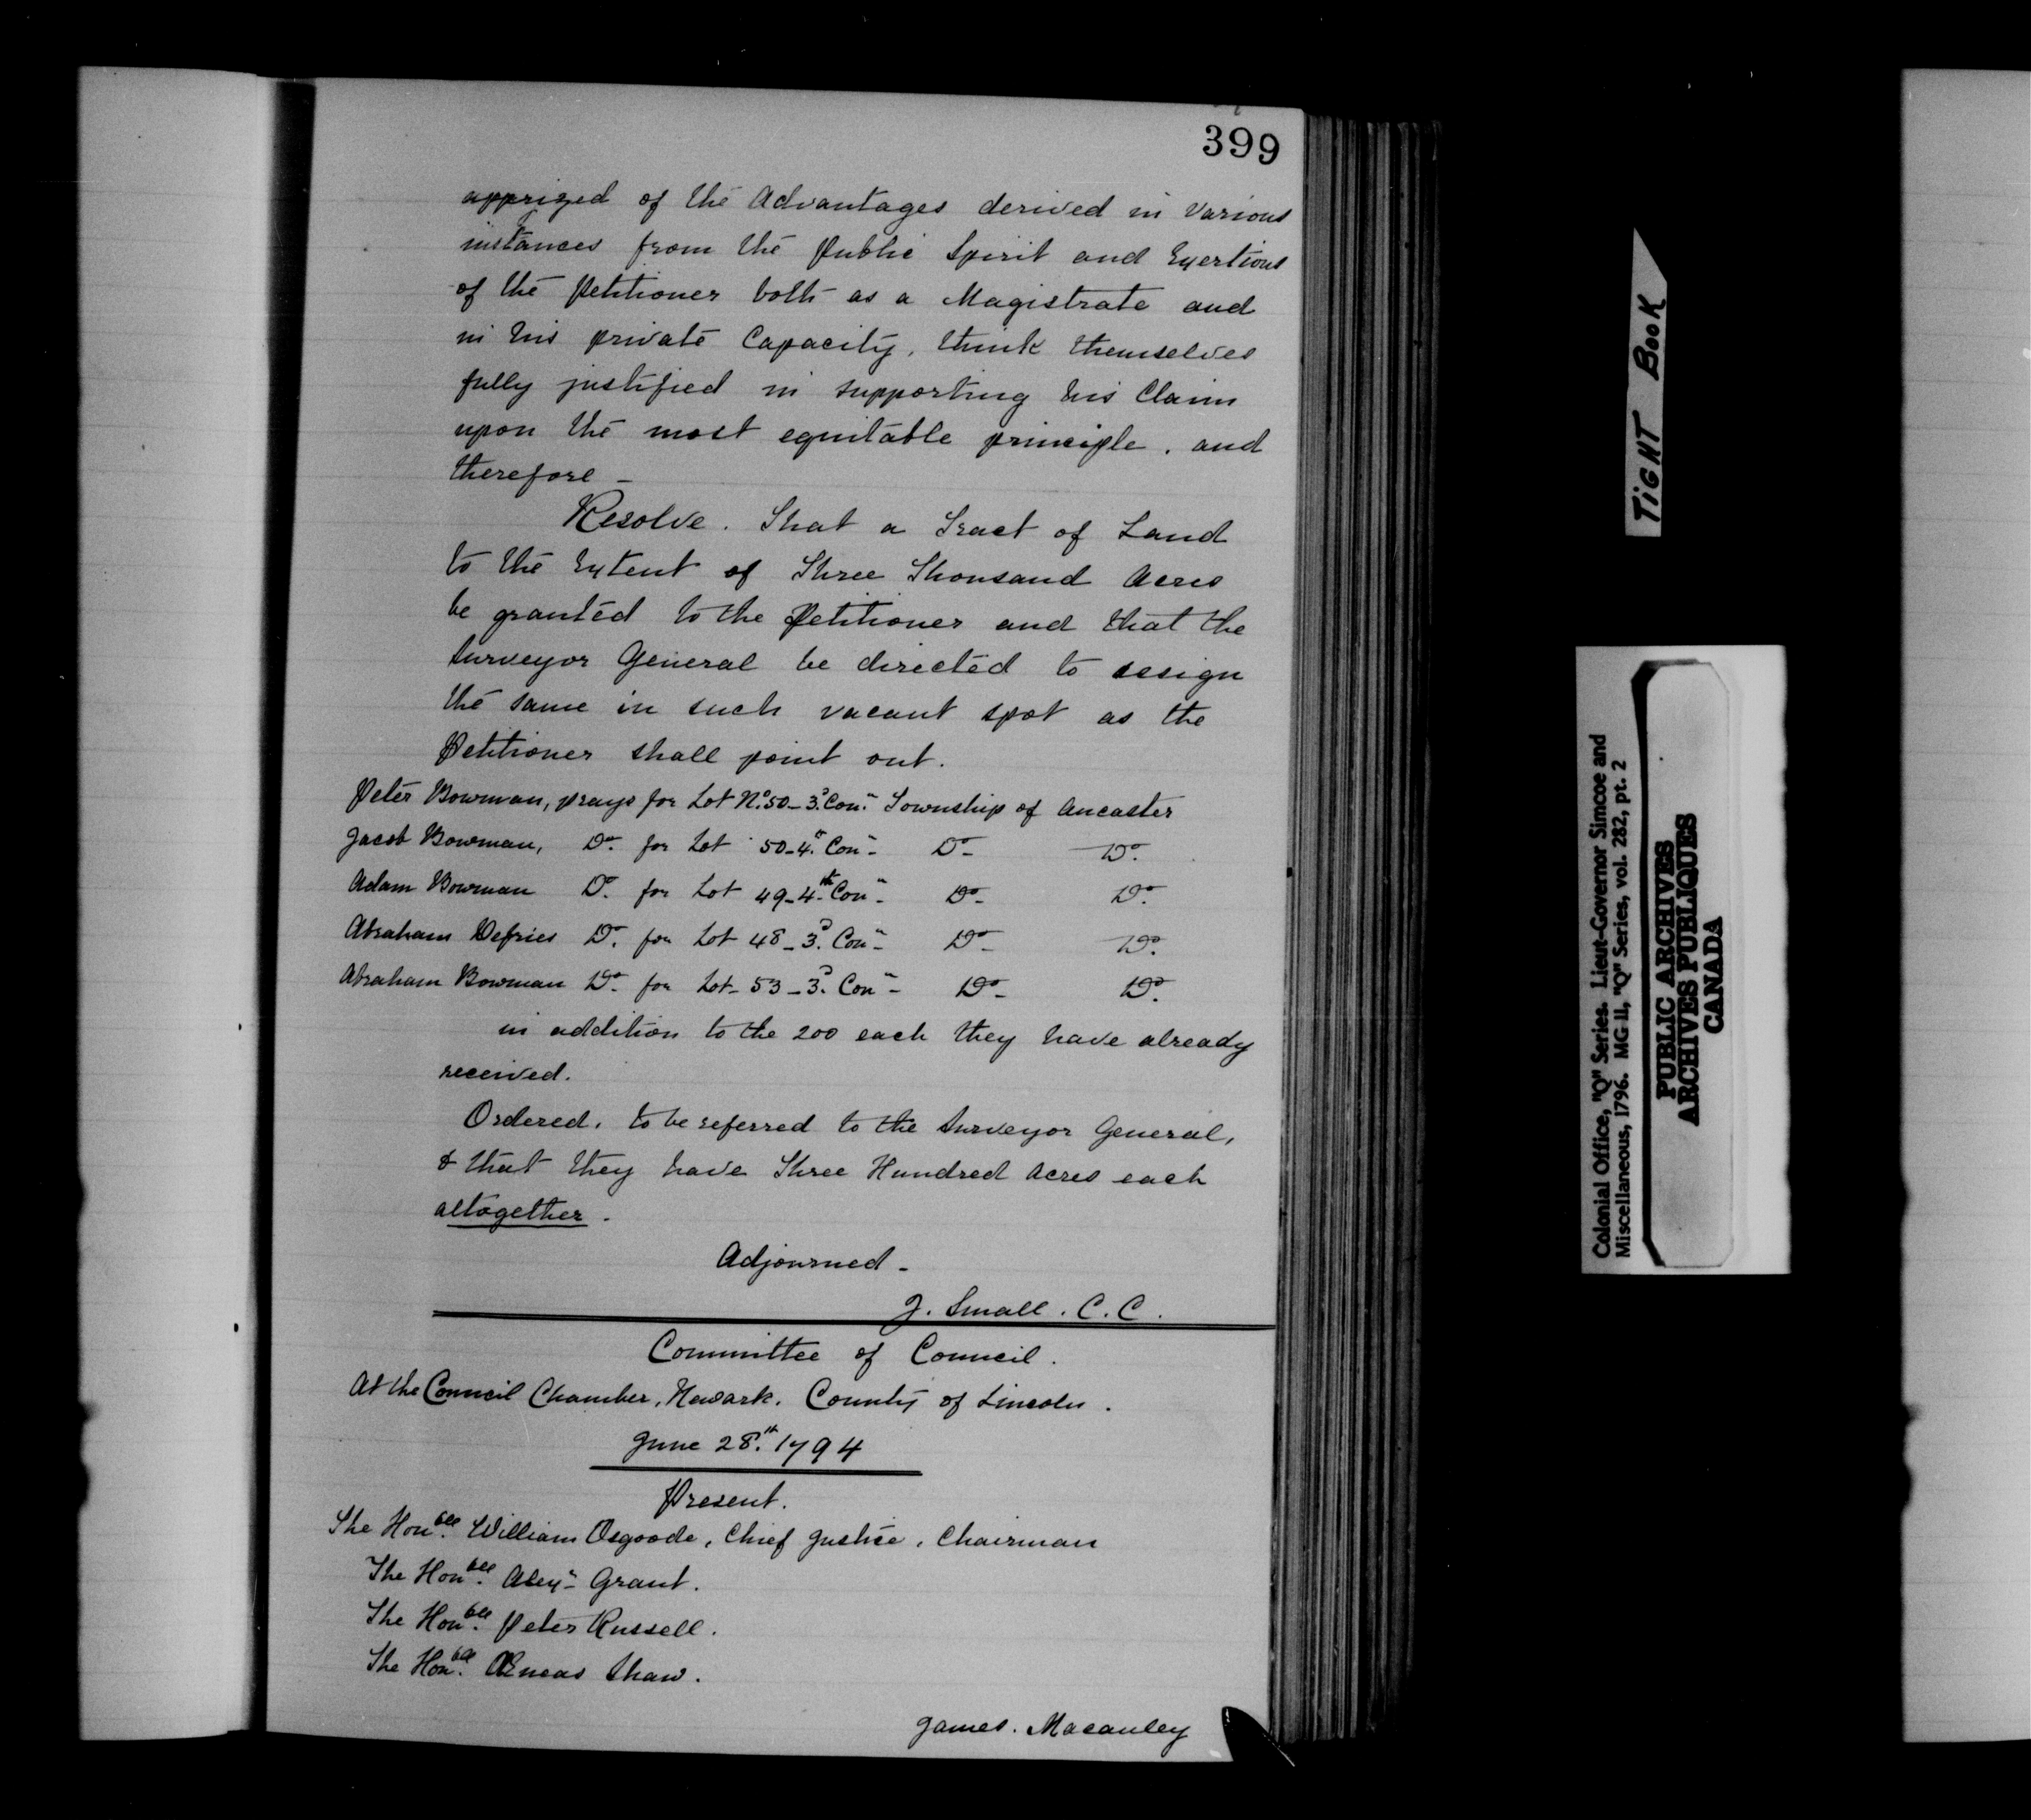 399
apprized of the Advantages derived in various
instances from the public Spirit and Exertions
of the Petitioner both as a Magistrate and
in his private Capacity, think themselves
fully justified in supporting his Claim
upon the most equitable principle, and
therefore -
Resolve. That a Tract of Land
to the Extent of Three Thousand Acres
be granted to the Petitioner and that the
Surveyor General be directed to assign
the same in such vacant spot as the
Petitioner shall point out.
Peter Bowman, prays for Lot No. 50 - 3d. Con:n Township of Ancaster
Jacob Bowman, Do. for Lot 50 - 4th. Con:n - Do - Do.
Adam Bowman Do. for Lot 49 - 4th. Con:n - Do - Do.
Abraham Defries Do. for Lot 48 - 3d. Con:n - Do - Do.
Abraham Bowman Do. for Lot - 53 - 3d. Con:n - Do - Do.
in addition to the 200 each they have already
received.
Ordered, to be referred to the Surveyor General,
& that they have Three Hundred Acres each
altogether.
Adjourned -
J. Small. C.C.
Committee of Council.
At the Council Chamber, Newark, County of Lincoln.
June 28th. 1794
Present.
The Honble. William Osgoode, Chief Justice, Chairman
The Honble. Alexr. Grant.
The Honble. Peter Russell.
The Honble. Æneas Shaw.
James. Macauley
TIGHT BOOK
Colonial Office, "Q" Series. Lieut-Governor Simcoe and
Miscellaneous, 1796. MG 11, "Q" Series, vol. 282, pt. 2
PUBLIC ARCHIVES
ARCHIVES PUBLIQUES
CANADA